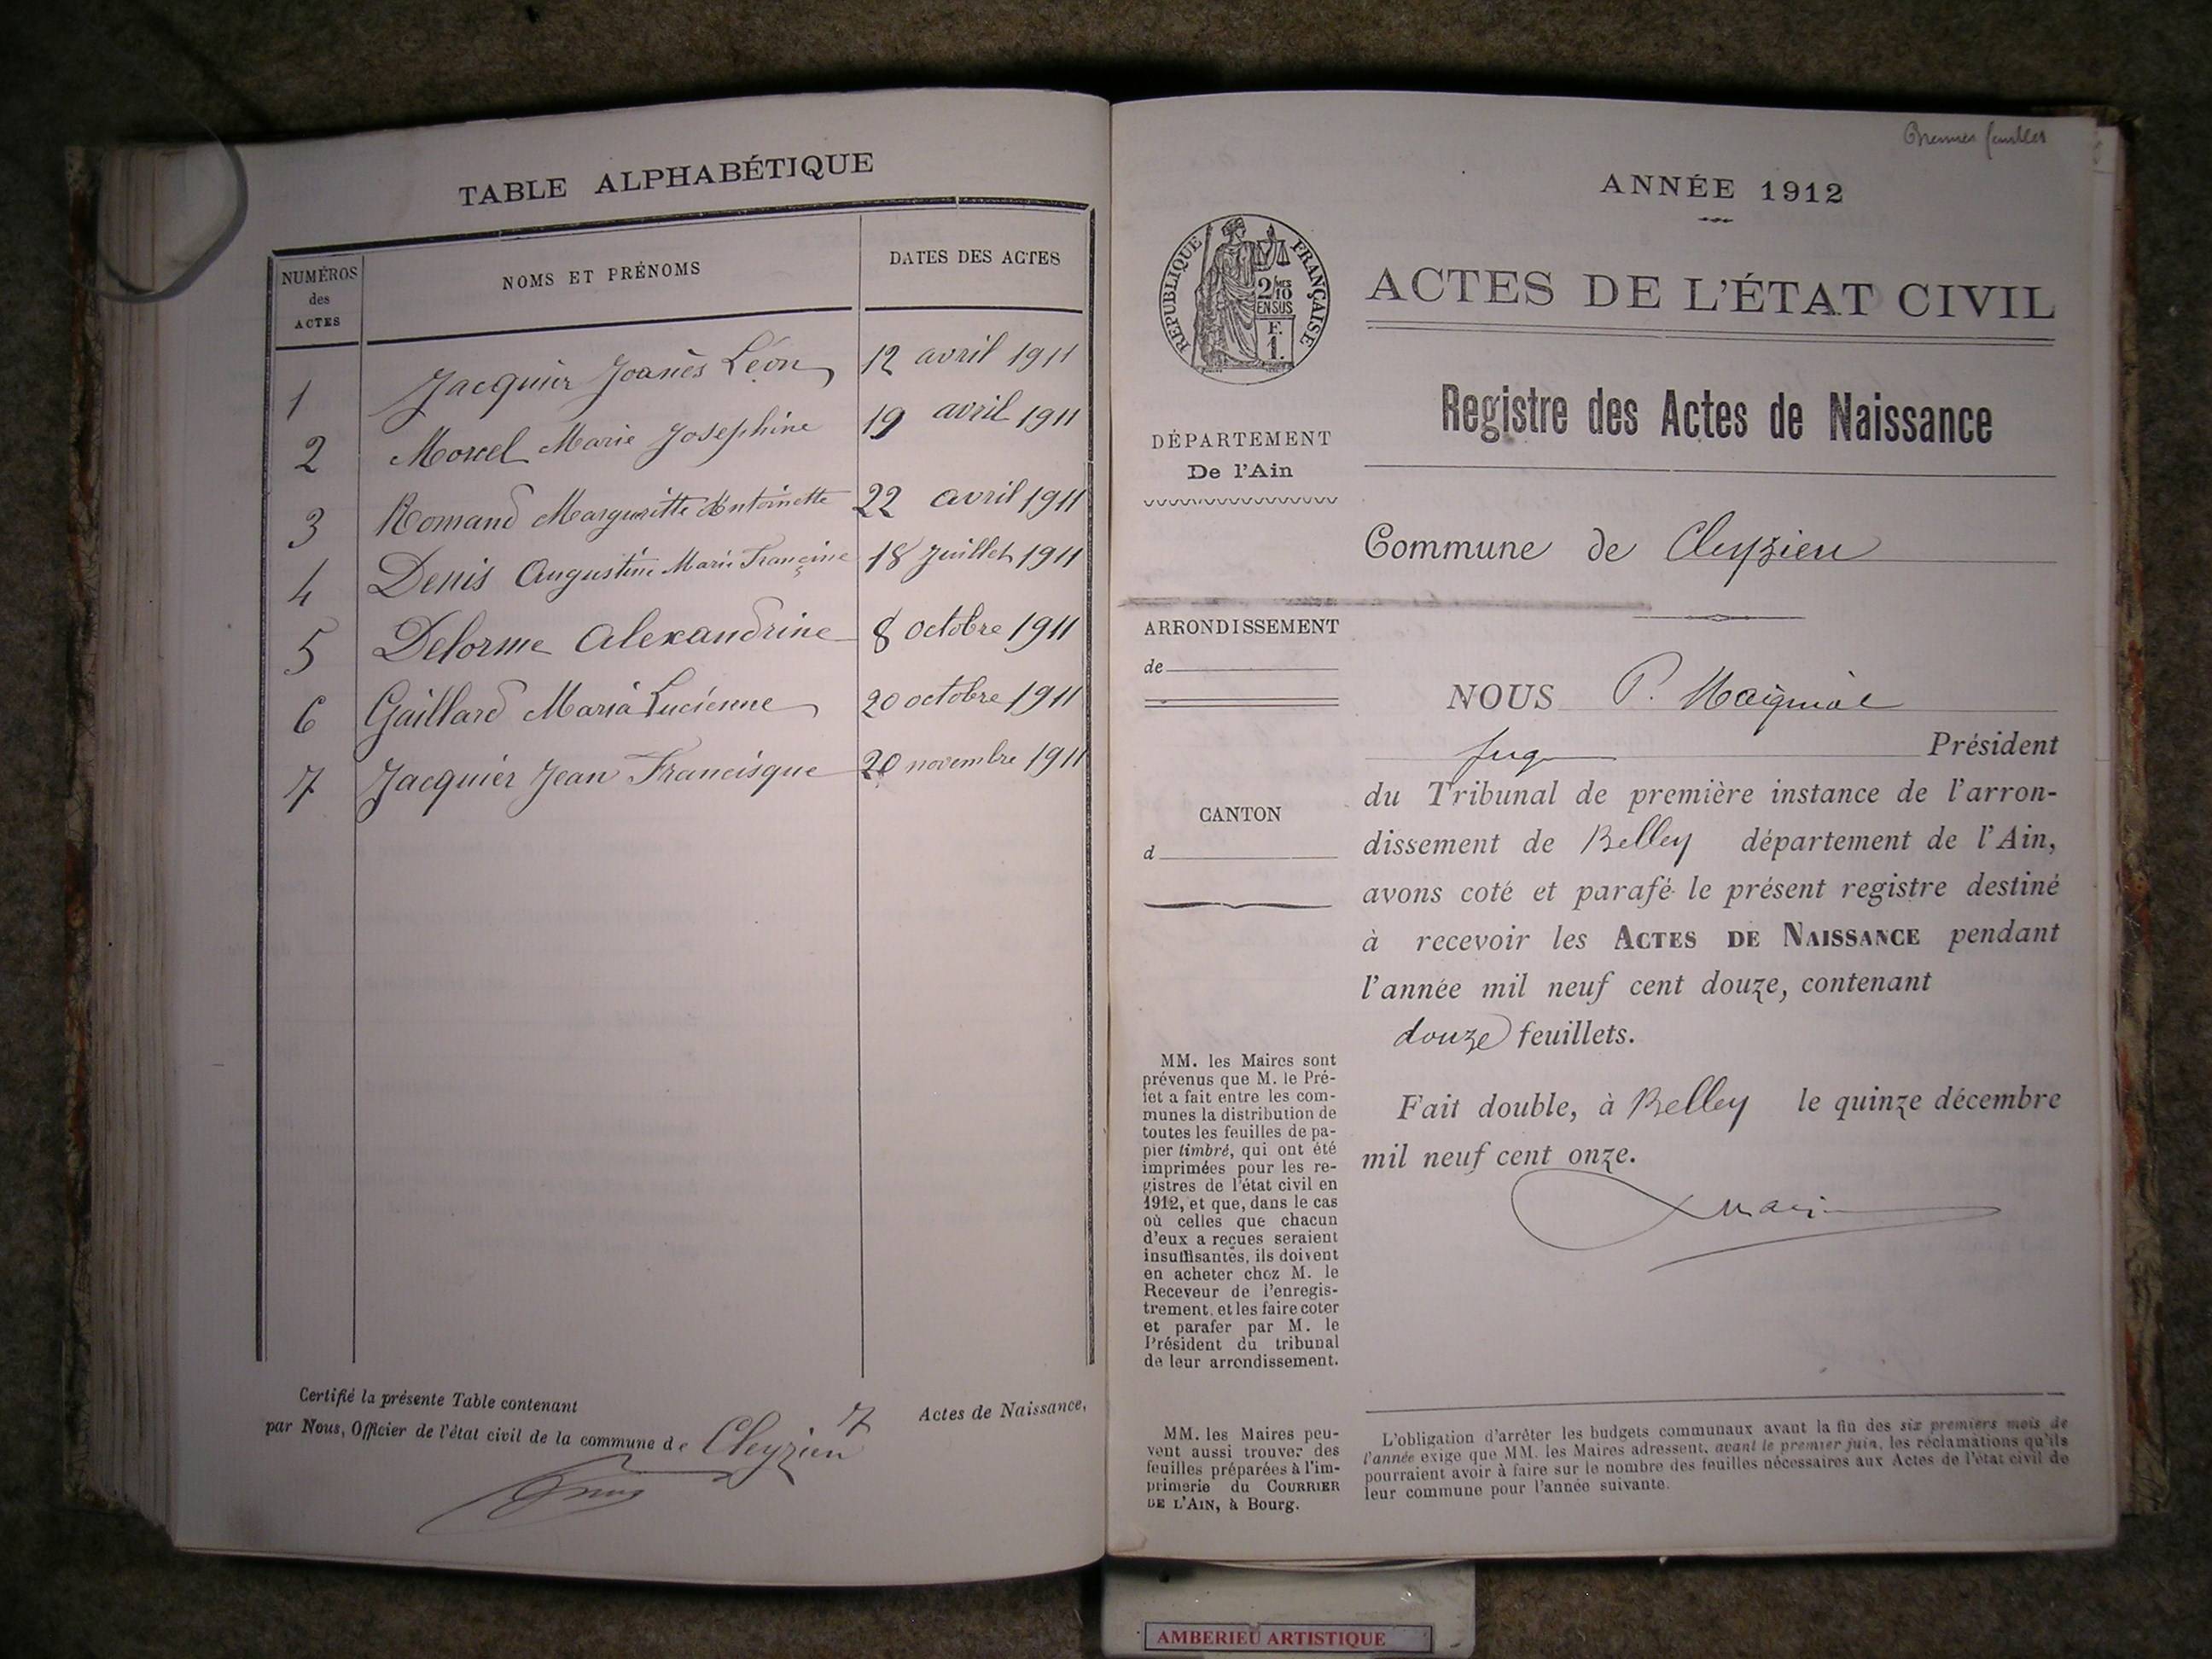 TABLE ALPHABÉTIQUE
NUMÉROS des ACTES
NOMS ET PRÉNOMS
DATES DES ACTES
1 Jacquier Joanès Léon 12 avril 1911
2 Morcel Marie Josephine 19 avril 1911
3 Romand Margueritte Antoinette 22 avril 1911
4 Denis Augustine Marie Françine 18 Juillet 1911
5 Delorme Alexandrine 8 octobre 1911
6 Gaillard Maria Lucienne 20 octobre 1911
7 Jacquier Jean Francisque 20 novembre 1911
Certifié la présente Table contenant 7 Actes de Naissance,
par Nous, Officier de l'état civil de la commune de Cleyzieu
ANNÉE 1912
RÉPUBLIQUE FRANÇAISE
2/10 MES
EN SUS
F.
1.
ACTES DE L'ÉTAT CIVIL
Registre des Actes de Naissance
DÉPARTEMENT
De l'Ain
Commune de Cleyzieu
ARRONDISSEMENT
de
CANTON
d
NOUS P.
Juge Président
du Tribunal de première instance de l'arron-
dissement de Belley département de l'Ain,
avons coté et parafé le présent registre destiné
à recevoir les ACTES DE NAISSANCE pendant
l'année mil neuf cent douze, contenant
douze feuillets.
Fait double, à Belley le quinze décembre
mil neuf cent onze.
MM. les Maires sont
prévenus que M. le Pré-
fet a fait entre les com-
munes la distribution de
toutes les feuilles de pa-
pier timbré, qui ont été
imprimées pour les re-
gistres de l'état civil en
1912, et que, dans le cas
où celles que chacun
d'eux a reçues seraient
insuffisantes, ils doivent
en acheter chez M. le
Receveur de l'enregis-
trement, et les faire coter
et parafer par M. le
Président du tribunal
de leur arrondissement.
MM. les Maires peu-
vent aussi trouver des
feuilles préparées à l'im-
primerie du COURRIER
DE L'AIN, à Bourg.
L'obligation d'arrêter les budgets communaux avant la fin des six premiers mois de
l'année exige que MM. les Maires adressent, avant le premier juin, les réclamations qu'ils
pourraient avoir à faire sur le nombre des feuilles nécessaires aux Actes de l'état civil de
leur commune pour l'année suivante.
AMBERIEU ARTISTIQUE